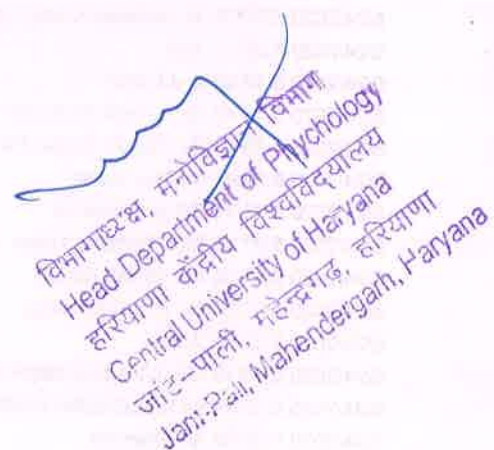 विभागाध्यक्ष, मनोविज्ञान विभाग
Head Department of Phychology
हरियाणा केंद्रीय विश्वविद्यालय
Central University of Haryana
जांट-पाली, महेन्द्रगढ़, हरियाणा
Jant-Pali, Mahendergarh, Haryana